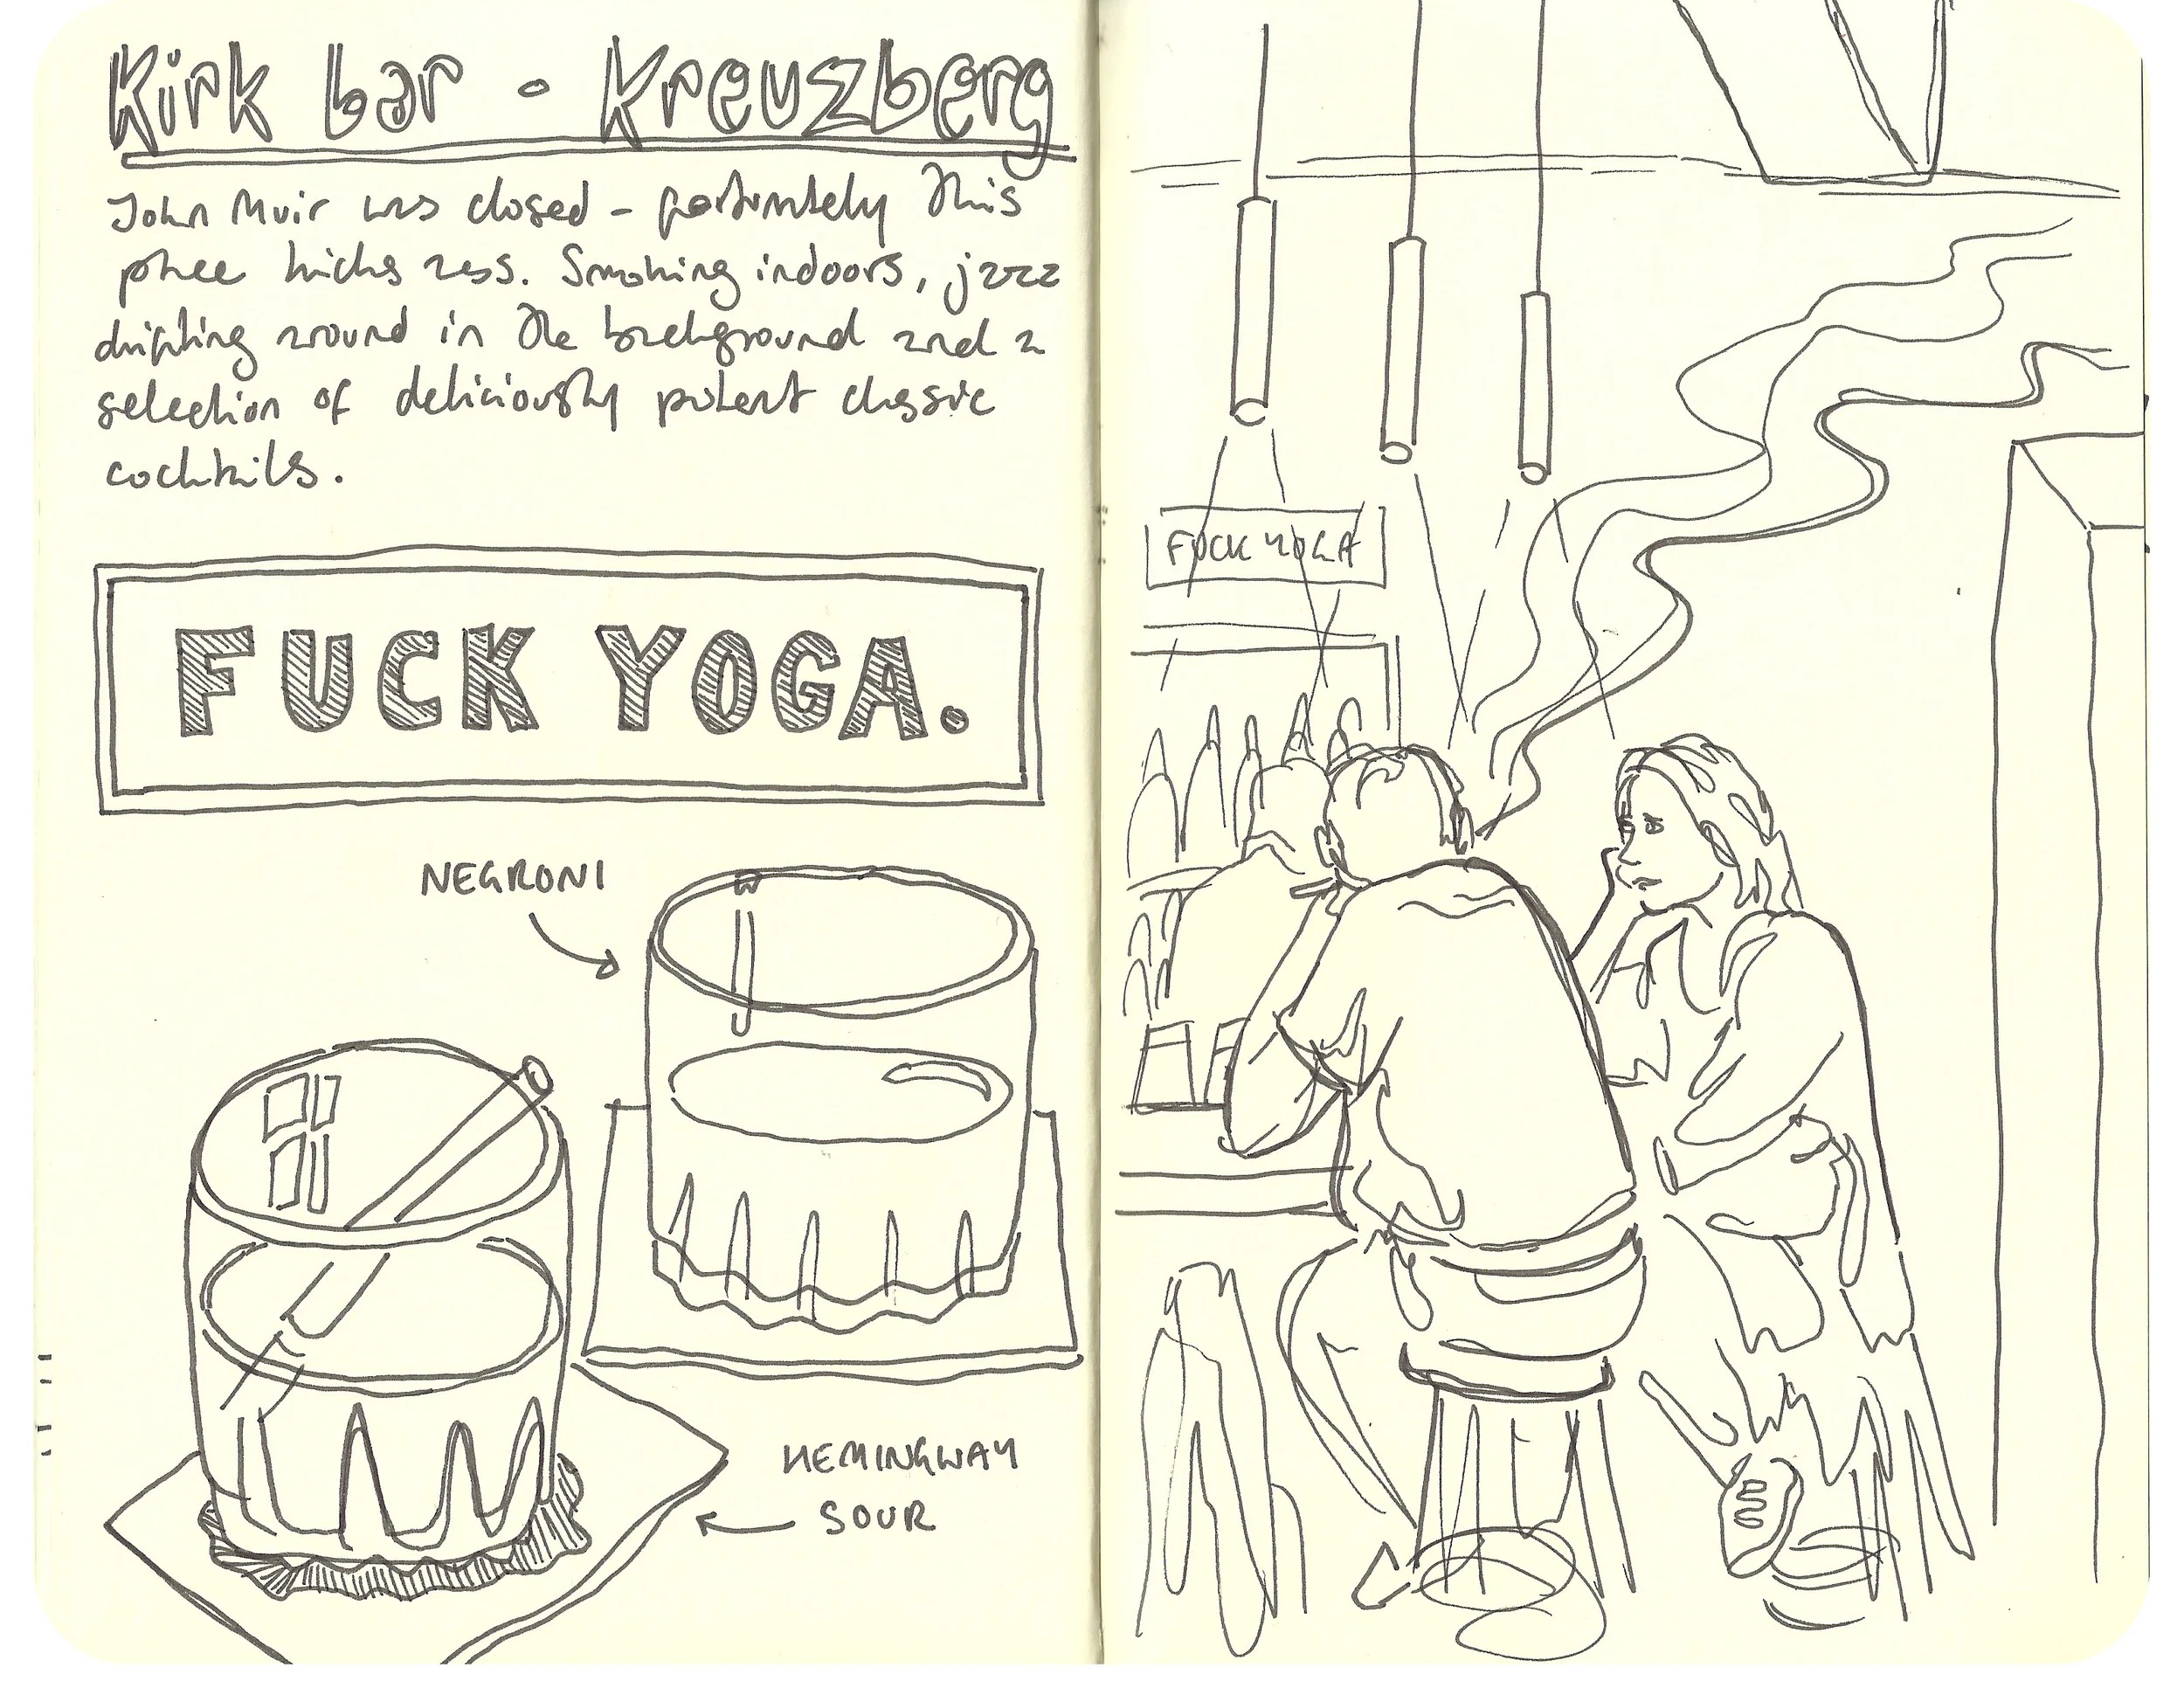 Kirk bar - Kreuzberg
John Muir was closed - fortunately this
place kicks ass. Smoking indoors, jazz
drifting around in the background and a
selection of deliciously potent classic
cocktails.
FUCK YOGA.
NEGRONI
HEMINGWAY
SOUR
FUCK YOGA